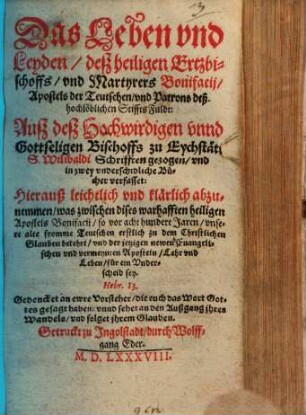 Das Leben vnd
Leyden / deß heiligen Ertzbi-
schoffs / vnd Martyrers Bonifacij /
Apostels der Teutschen / vnd Patrons deß
hochlöblichen Stiffts Fuldt:
Auß deß Hochwirdigen vnnd
Gottseligen Bischoffs zu Eychstätt
S. Wilibaldi Schrifften gezogen / vnd
in zwey vnderschidliche Bü-
cher verfasset:
Hierauß leichtlich vnd klärlich abzu-
nemmen / was zwischen dises warhafften heiligen
Apostels Bonifacij / so vor acht hundert Jaren / vnse-
re alte fromme Teutschen erstlich zu dem Christlichen
Glauben bekehrt / vnd der jetzigen newen Euangeli-
schen vnd vermeynten Aposteln / Lehr vnd
Leben / für ein Vnder-
scheid sey.
Hebr. 13.
Gedencket an ewre Vorsteher / die euch das Wort Got-
tes gesagt haben: vnnd sehet an den Außgang jhres
Wandels / vnd folget jhrem Glauben.
Getruckt zu Ingolstadt / durch Wolff-
gang Eder.
M. D. LXXXVIII.